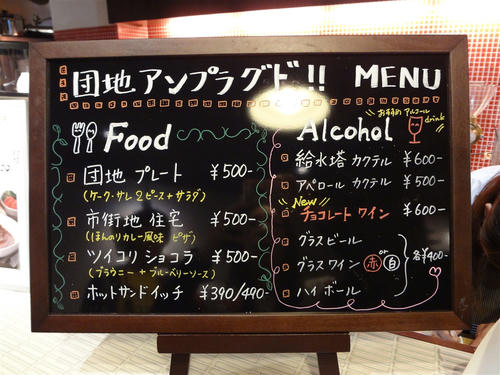 団地アンプラグド!! MENU
Food
団地 プレート ¥500-
(ケーク・サレ2ピース+サラダ)
市街地 住宅 ¥500-
(ほんのりカレー風味 ピザ)
ツイコリ ショコラ ¥500-
(ブラウニー+ブルーベリーソース)
ホットサンドイッチ ¥390/490-
おすすめ アルコール
drink
Alcohol
給水塔 カクテル ¥600-
アペロール カクテル ¥500-
New
チョコレート ワイン ¥600-
グラスビール
グラスワイン 赤 or 白
ハイ ボール
各¥400-